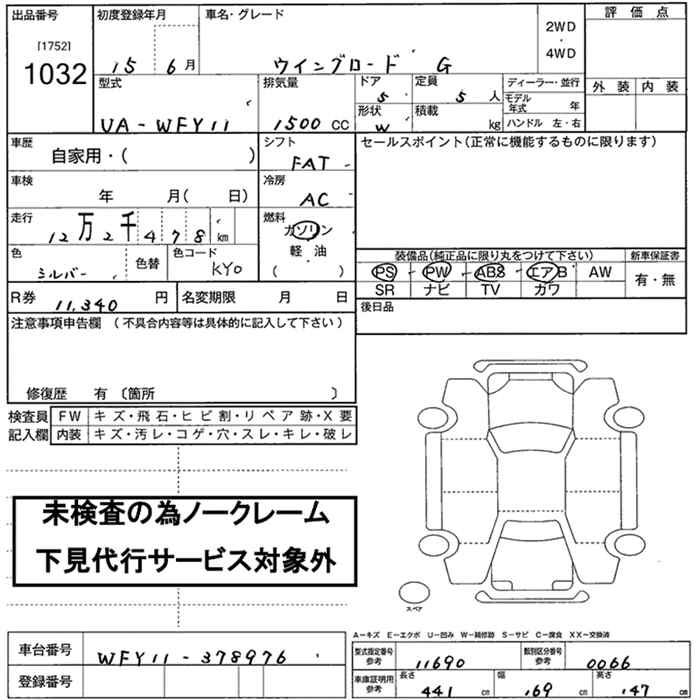 出品番号
[1752]
1032
初度登録年月
15 6月
車名・グレード
ウイングロード G
2WD
・
4WD
評価点
外装 内装
型式
UA-WFY11
排気量
1500 CC
ドア
5
形状
W
定員
5 人
積載
kg
ディーラー・並行
モデル年式 年
ハンドル 左・右
車歴
自家用・( )
シフト
FAT
セールスポイント(正常に機能するものに限ります)
車検
年 月( 日)
冷房
AC
走行
12万2千478km
燃料
ガソリン
軽・油
( )
色
シルバー
色替
色コード
KY0
装備品(純正品に限り丸をつけて下さい)
PS PW ABS エアB AW
SR ナビ TV カワ
新車保証書
有・無
R券 11,340 円
名変期限 月 日
後日品
注意事項申告欄 (不具合内容等は具体的に記入して下さい)
修復歴 有 〔箇所 〕
検査員記入欄
FW キズ・飛石・ヒビ割・リペア跡・X要
内装 キズ・汚レ・コゲ・穴・スレ・キレ・破レ
未検査の為ノークレーム
下見代行サービス対象外
スペア
A−キズ E−エクボ U−凹み W−補修跡 S−サビ C−腐食 XX−交換済
車台番号 WFY11-378976
登録番号
型式指定番号参考 11690
類別区分番号参考 0066
車庫証明用参考
長さ 441 cm
幅 .69 cm
高さ .47 cm